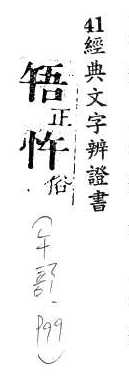 41經典文字辨證書
啎正忤俗
(午部.P99)